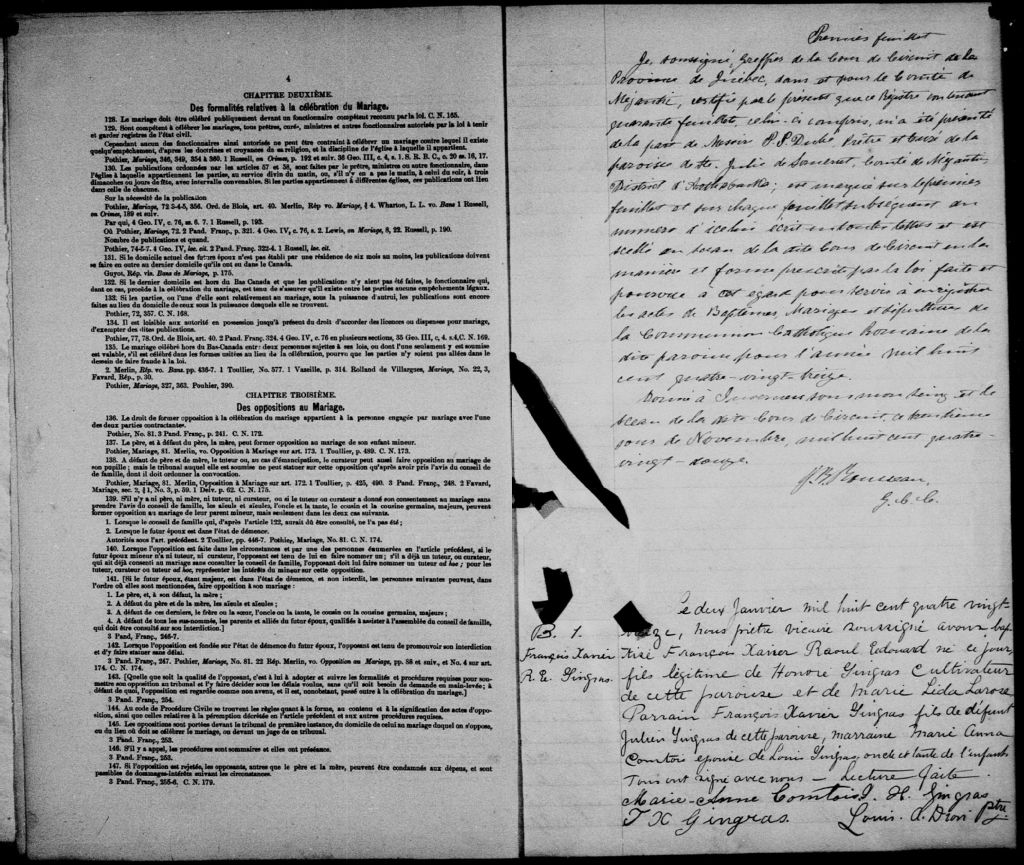 4
CHAPITRE DEUXIÈME.
Des formalités relatives à la célébration du Mariage.
128. Le mariage doit être célébré publiquement devant un fonctionnaire compétent reconnu par la loi. C. N. 165.
129. Sont compétents à célébrer les mariages, tous prêtres, curés, ministres et autres fonctionnaires autorisés par la loi à tenir
et garder registres de l'état civil.
Cependant aucun des fonctionnaires ainsi autorisés ne peut être contraint à célébrer un mariage contre lequel il existe
quelqu'empêchement, d'après les doctrines et croyances de sa religion, et la discipline de l'église à laquelle il appartient.
Pothier, Mariage, 346, 349, 354 à 360. 1 Russell, on Crimes, p. 192 et suiv. 36 Geo. III, c. 4, s. 1. S. R. B. C., c. 20 ss. 16, 17.
130. Les publications ordonnées par les articles 57 et 58, sont faites par le prêtre, ministre ou autre fonctionnaire, dans
l'église à laquelle appartiennent les parties, au service divin du matin, ou, s'il n'y en a pas le matin, à celui du soir, à trois
dimanches ou jours de fête, avec intervalle convenables. Si les parties appartiennent à différentes églises, ces publications ont lieu
dans celle de chacune.
Sur la nécessité de la publication
Pothier, Mariage, 72 3-4-5, 356. Ord. de Blois, art. 40. Merlin, Rép vo. Mariage, § 4. Wharton, L. L. vo. Bans 1 Russell,
on Crimes, 189 et suiv.
Par qui, 4 Geo. IV, c. 76, ss. 6. 7. 1 Russell, p. 193.
Où Pothier, Mariage, 72. 2 Pand. Franç., p. 321. 4 Geo. IV, c. 76, s. 2. Lewis, on Mariage, 8, 22. Russell, p. 190.
Nombre de publications et quand.
Pothier, 74-5-7. 4 Geo. IV, loc. cit. 2 Pand. Franç. 322-4. 1 Russell, loc. cit.
131. Si le domicile actuel des futurs époux n'est pas établi par une résidence de six mois au moins, les publications doivent
se faire en outre au dernier domicile qu'ils ont eu dans le Canada.
Guyot, Rép. vis. Bans de Mariage, p. 175.
132. Si le dernier domicile est hors du Bas Canada et que les publications n'y aient pas été faites, le fonctionnaire qui,
dans ce cas, procède à la célébration du mariage, est tenu de s'assurer qu'il existe entre les parties aucuns empêchements légaux.
133. Si les parties, ou l'une d'elle sont relativement au mariage, sous la puissance d'autrui, les publications sont encore
faites au lieu du domicile de ceux sous la puissance desquels elle se trouvent.
Pothier, 72, 357. C. N. 168.
134. Il est loisible aux autorité en possession jusqu'à présent du droit d'accorder des licences ou dispenses pour mariage,
d'exempter des dites publications.
Pothier, 77, 78. Ord. de Blois, art. 40. 2 Pand. Franç. 324. 4 Geo. IV, c. 76 en plusieurs sections, 35 Geo. III, c. 4, s. 4, C. N. 169.
135. Le mariage célébré hors du Bas-Canada entre deux personnes sujettes à ses lois, ou dont l'une seulement y est soumise
est valable, s'il est célébré dans les formes usitées au lieu de la célébration, pourvu que les parties n'y soient pas allées dans le
dessein de faire fraude à la loi.
2. Merlin, Rép. vo. Bans pp. 436-7. 1 Toullier, No. 577. 1 Vazeille, p. 314. Rolland de Villargues, Mariage, No. 22, 3,
Favard, Rép., p. 30.
Pothier, Mariage, 327, 363. Pouhier, 390.
CHAPITRE TROISIÈME.
Des oppositions au Mariage.
136. Le droit de former opposition à la célébration du mariage appartient à la personne engagée par mariage avec l'une
des deux parties contractantes.
Pothier, No. 81. 3 Pand. Franç., p. 241. C. N. 172.
137. Le père, et à défaut du père, la mère, peut former opposition au mariage de son enfant mineur.
Pothier, Mariage, 81. Merlin, vo. Opposition à Mariage sur art. 173. 1 Toullier, p. 489. C. N. 173.
138. A défaut de père et de mère, le tuteur ou, au cas d'émancipation, le curateur peut aussi faire opposition au mariage de
son pupille; mais le tribunal auquel elle est soumise ne peut statuer sur cette opposition qu'après avoir pris l'avis du conseil de
famille, dont il doit ordonner la convocation.
Pothier, Mariage, 81. Merlin, Opposition à Mariage sur art. 172. 1 Toullier, p. 425, 490. 3 Pand. Franç., 248. 2 Favard,
Mariage, sec. 2, § 1, No. 3, p. 59. 1 Delv. p. 62. C. N. 175.
139. S'il n'y a ni père, ni mère, ni tuteur, ni curateur, ou si le tuteur ou curateur a donné son consentement au mariage sans
prendre l'avis du conseil de famille, les aïeuls et aïeules, l'oncle et la tante, le cousin et la cousine germains, majeurs, peuvent
former opposition au mariage de leur parent mineur, mais seulement dans les deux cas suivants.
1. Lorsque le conseil de famille qui, d'après l'article 122, aurait dû être consulté, ne l'a pas été;
2. Lorsque le futur époux est dans l'état de démence.
Autorités sous l'art. précédent. 2 Toullier, pp. 446-7. Pothier, Mariage, No. 81. C. N. 174.
140. Lorsque l'opposition est faite dans les circonstances et par une des personnes énumérées en l'article précédent, si le
futur époux mineur n'a ni tuteur, ni curateur, l'opposant est tenu de lui en faire nommer un; s'il a déjà un tuteur, ou curateur,
qui ait déjà consenti au mariage sans consulter le conseil de famille, l'opposant doit lui faire nommer un tuteur ad hoc; pour les
tuteur, curateur ou tuteur ad hoc, représenter les intérêts du mineur sur cette opposition.
141. [Si le futur époux, étant majeur, est dans l'état de démence, et non interdit, les personnes suivantes peuvent, dans
l'ordre où elles sont mentionnées, faire opposition à son mariage:
1. Le père, et, à son défaut, la mère;
2. A défaut du père et de la mère, les aïeuls et aïeules;
3. A défaut de ces derniers, le frère ou la sœur, l'oncle ou la tante, le cousin ou la cousine germains, majeurs;
4. A défaut de tous les sus-nommés, les parents et alliés du futur époux, qualifiés à assister à l'assemblée du conseil de famille,
qui doit être consulté sur son interdiction.]
3 Pand. Franç., 246-7.
142. Lorsque l'opposition est fondée sur l'état de démence du futur époux, l'opposant est tenu de promouvoir son interdiction
et d'y faire statuer sans délai.
3 Pand. Franç., 247. Pothier, Mariage, No. 81. 22 Rép. Merlin, vo. Opposition au Mariage, pp. 88 et suiv., et No. 4 sur art.
174. C. N. 174.
143. [Quelque que soit la qualité de l'opposant, c'est à lui à adopter et suivre les formalités et procédures requises pour sou-
mettre son opposition au tribunal et l'y faire décider sous les délais voulus, sans qu'il soit besoin de demande en main-levée; à
défaut de quoi, l'opposition est regardée comme non avenu, et il est, nonobstant, passé outre à la célébration du mariage.]
3 Pand. Franç., 254.
144. Au code de Procédure Civile se trouvent les règles quant à la forme, au contenu et à la signification des actes d'oppo-
sition, ainsi que celles relatives à la péremption décrétée en l'article précédent et aux autres procédures requises.
145. Les oppositions sont portées devant le tribunal de première instance, du domicile de celui au mariage duquel on s'oppose,
ou du lieu où doit se célébrer le mariage, ou devant un juge de ce tribunal.
3 Pand. Franç., 253.
146. S'il y a appel, les procédures sont sommaires et elles ont préséance.
3 Pand. Franç., 253.
147. Si l'opposition est rejetée, les opposants, autres que le père et la mère, peuvent être condamnés aux dépens, et sont
passibles de dommages-intérêts suivant les circonstances.
3 Pand. Franç., 255-6. C. N. 179.
Premier feuillet
Je, soussigné, Greffier de la Cour de Circuit de la
Province de Québec, dans et pour le Comté de
Mégantic, certifie par le présent que ce Régistre contenant
quarante feuillets, celui-ci compris, m'a été présenté
de la part de Messir P. S. Dubé, Prêtre et Curé de la
paroisse de Ste. Julie de Somerset, Comté de Mégantic
District d'Arthabaska; est marqué sur le premier
feuillet et sur chaque feuillet subséquent du
numéro d'icelui écrit en toutes lettres et est
scellé du sceau de la dite Cour de Circuit en la
manière et forme prescrite par la loi faite et
pourvue à cet égard pour servir à enrégistrer
les actes de Baptêmes, Mariages et Sépultures de
la Communion Catholique Romaine de la
dite paroisse, pour l'année mil huit
cent quatre-vingt-treize.
Donné à Inverness sous mon seing et le
sceau de la dite Cour de Circuit, ce trentième
jour de Novembre, mil huit cent quatre-
vingt-douze.
G. C. C.
B. 1.
François Xavier
R. E. Gingras.
Le deux Janvier mil huit cent quatre vingt-
treize, nous prêtre vicaire soussigné avons bap
tisé François Xavier Raoul Edouard né ce jour,
fils légitime de Honore Gingras Cultivateur
de cette paroisse et de Marie Lida Larose
Parrain François Xavier Gingras fils de défunt
Julien Gingras de cette paroisse, marraine Marie Anna
Comtois epouse de Louis Gingras, oncle et tante de l'enfant.
Tous ont signé avec nous — Lecture faite.
Marie-Anne Comtois J. H. Gingras
F X Gingras. Louis. A. Dion Ptre.